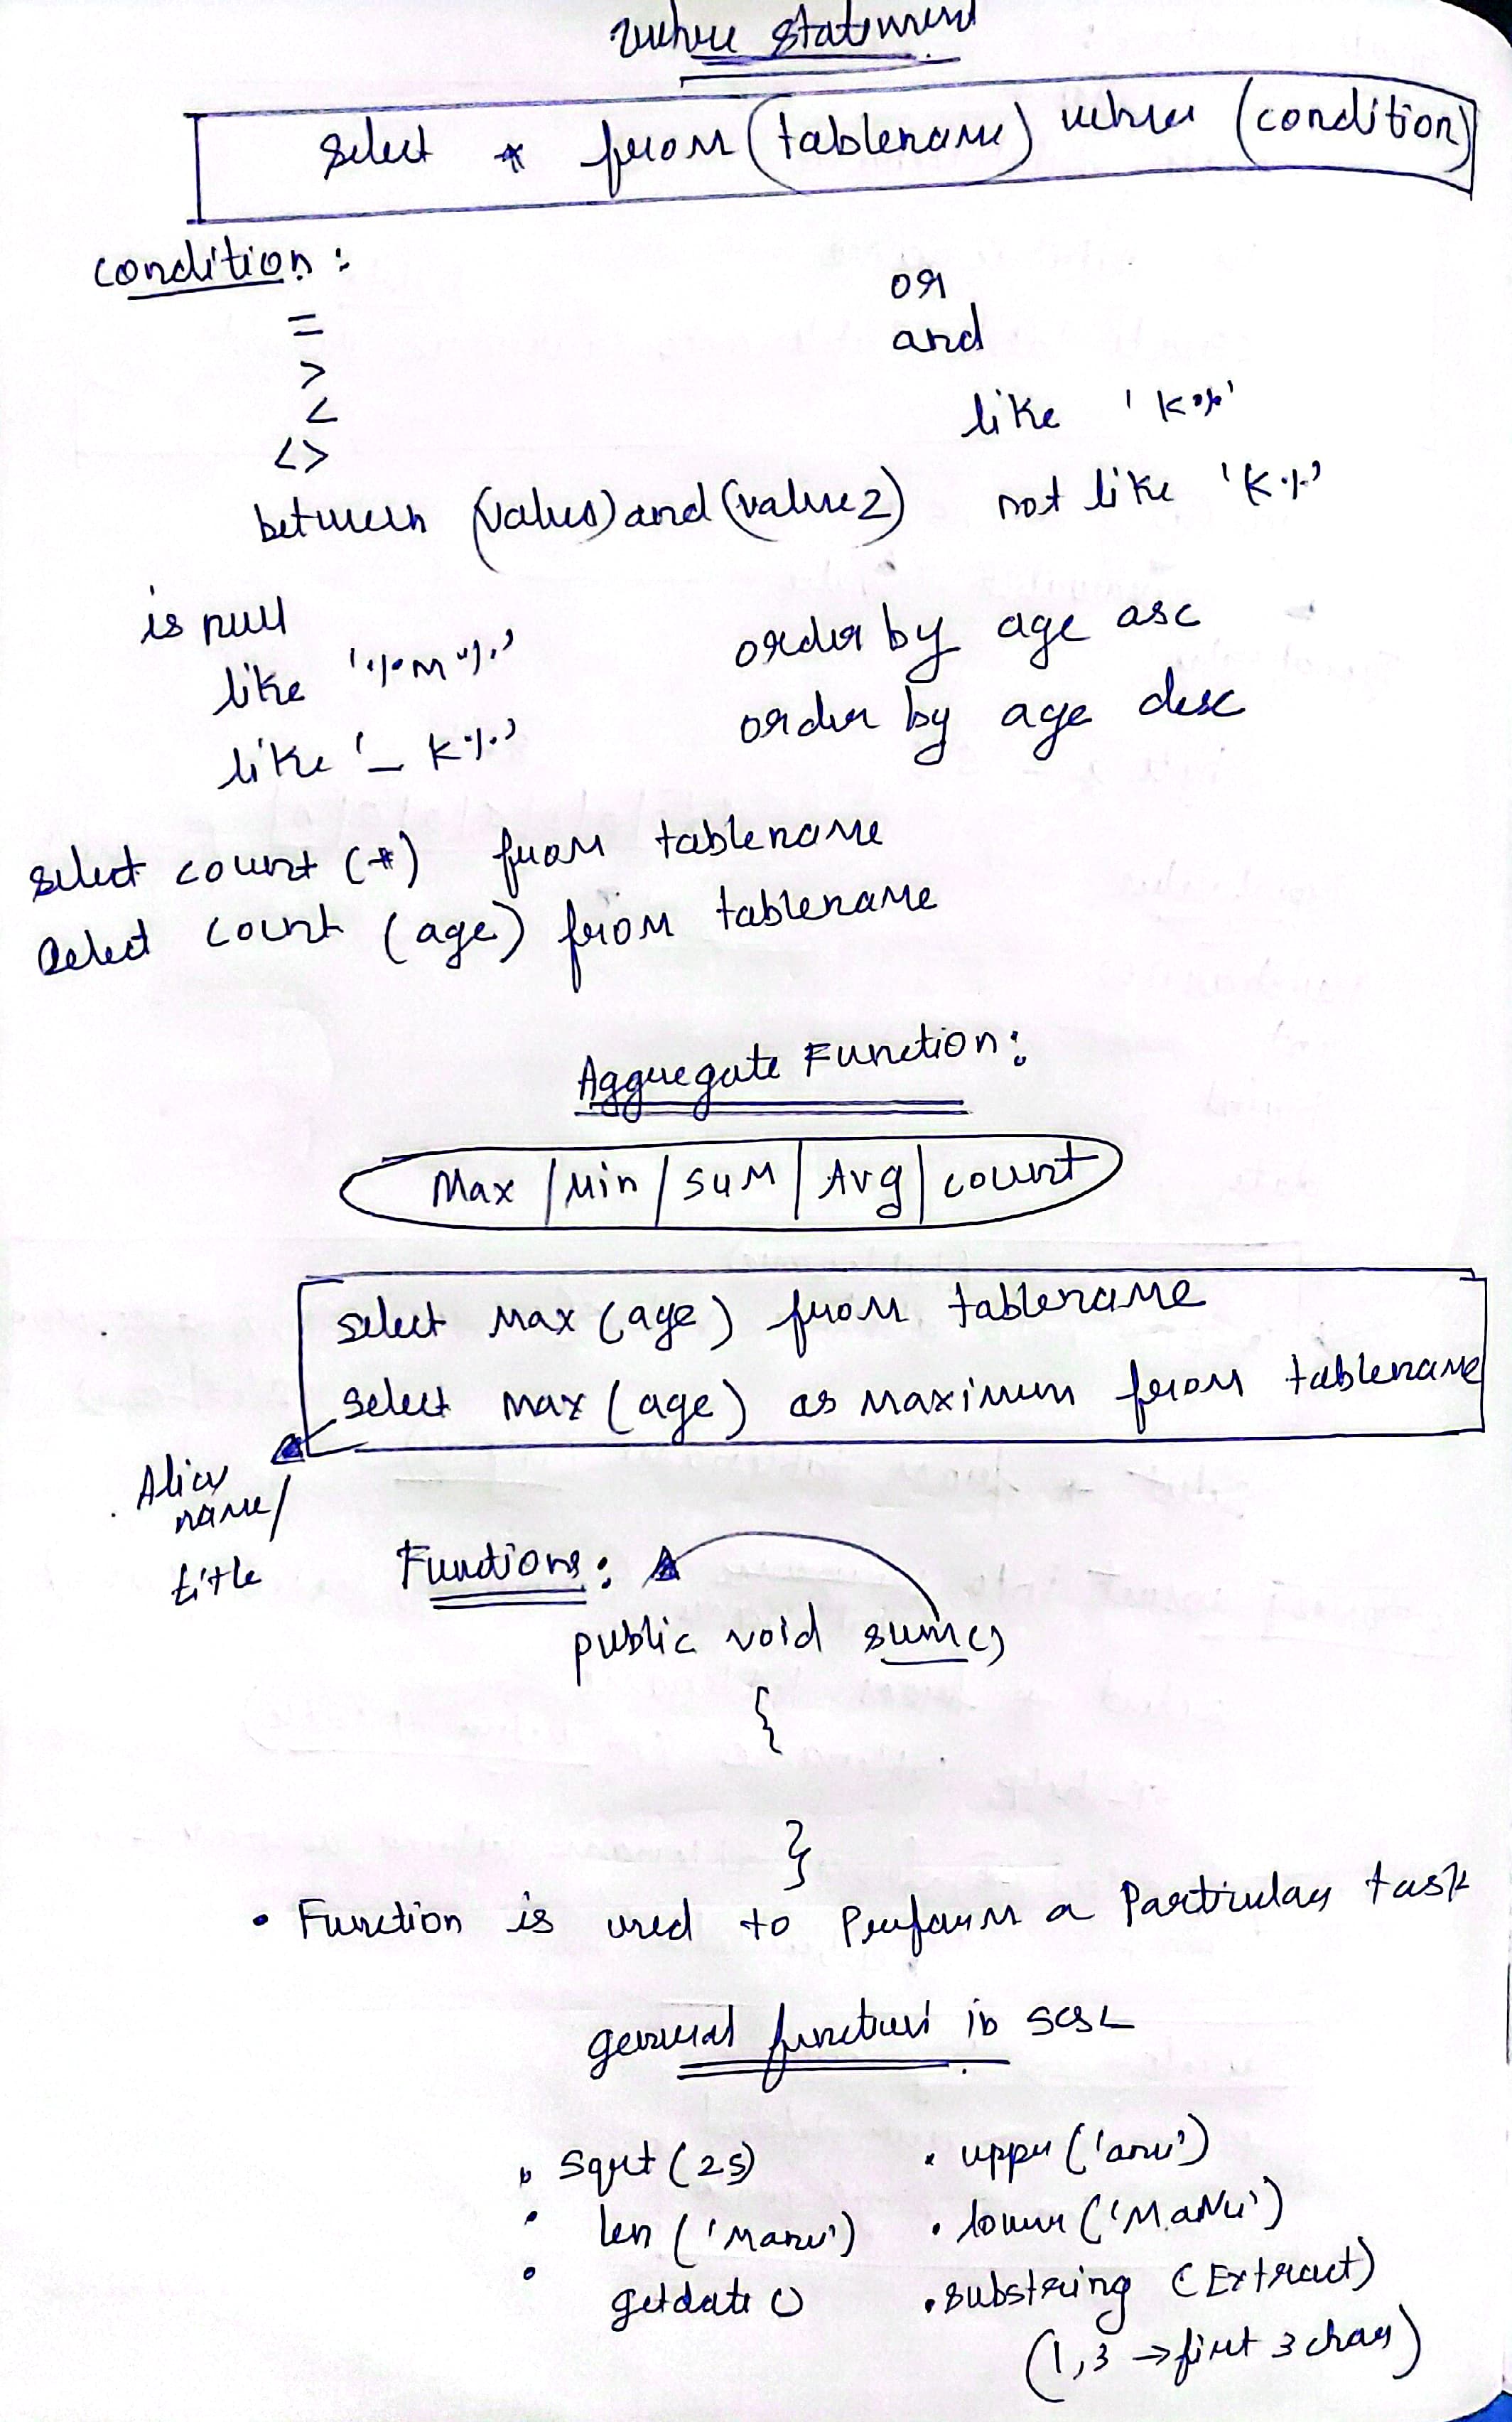 where statement
select * from (tablename) where (condition)
condition :
=
>
<
<>
between (value1) and (value2)
or
and
like 'K%'
not like 'K%'
is null
like '%M%'
like '_K%'
order by age asc
order by age desc
select count (*) from tablename
select count (age) from tablename
Aggregate Function:
Max / Min / SUM / Avg / count
select Max (age) from tablename
select max (age) as Maximum from tablename
Alias
name/
title
Functions:
public void sum()
{
}
• Function is used to Perform a Particular task
general function in SQL
• sqrt (25)
• len ('Manu')
• getdate ()
• upper ('anu')
• lower ('MaNu')
• substring (Extract)
(1,3 → first 3 char)